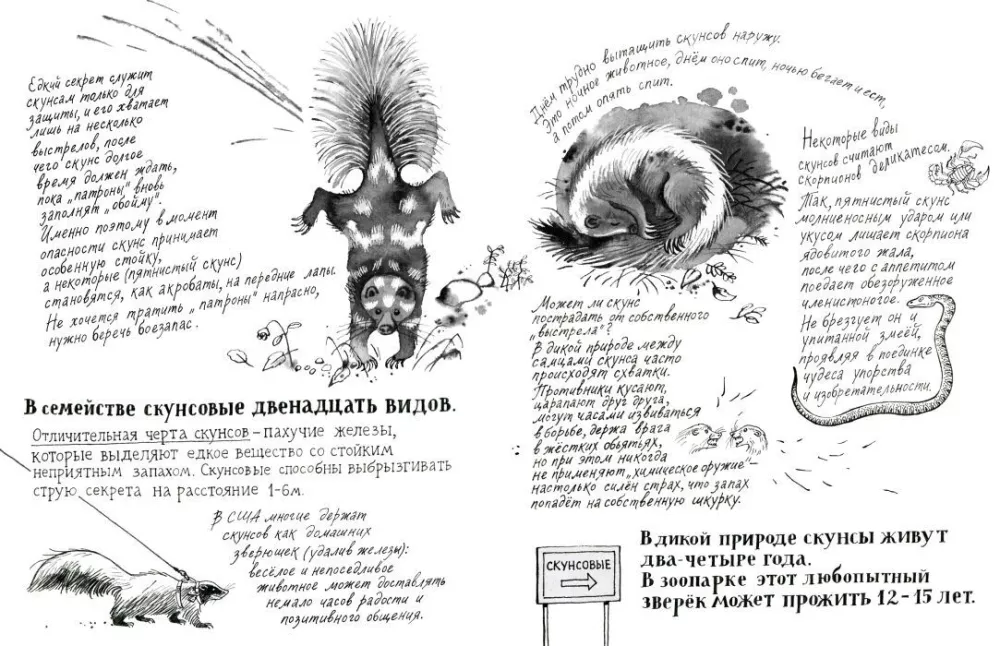 Едкий секрет служит
скунсам только для
защиты, и его хватает
лишь на несколько
выстрелов, после
чего скунс долгое
время должен ждать,
пока „патроны" вновь
заполнят „обойму".
Именно поэтому в момент
опасности скунс принимает
особенную стойку,
а некоторые (пятнистый скунс)
становятся, как акробаты, на передние лапы.
Не хочется тратить „патроны" напрасно,
нужно беречь боезапас.
В семействе скунсовые двенадцать видов.
Отличительная черта скунсов – пахучие железы,
которые выделяют едкое вещество со стойким
неприятным запахом. Скунсовые способны выбрызгивать
струю секрета на расстояние 1-6м.
В США многие держат
скунсов как домашних
зверюшек (удалив железы):
весёлое и непоседливое
животное может доставлять
немало часов радости и
позитивного общения.
Днём трудно вытащить скунсов наружу.
Это ночное животное, днём оно спит, ночью бегает и ест,
а потом опять спит.
Некоторые виды
скунсов считают
скорпионов деликатесом.
Так, пятнистый скунс
молниеносным ударом или
укусом лишает скорпиона
ядовитого жала,
после чего с аппетитом
поедает обезоруженное
членистоногое.
Не брезгует он и
упитанной змеёй,
проявляя в поединке
чудеса упорства
и изобретательности.
Может ли скунс
пострадать от собственного
„выстрела"?
В дикой природе между
самцами скунса часто
происходят схватки.
Противники кусают,
царапают друг друга,
могут часами извиваться
в борьбе, держа врага
в жёстких обьятьях,
но при этом никогда
не применяют „химическое оружие" –
настолько силён страх, что запах
попадёт на собственную шкурку.
СКУНСОВЫЕ
В дикой природе скунсы живут
два-четыре года.
В зоопарке этот любопытный
зверёк может прожить 12 - 15 лет.